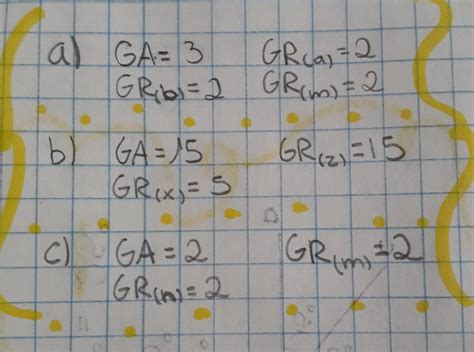 a) GA = 3 GR(a) = 2
GR(b) = 2 GR(m) = 2
b) GA = 15 GR(z) = 15
GR(x) = 5
c) GA = 2 GR(m) = 2
GR(n) = 2